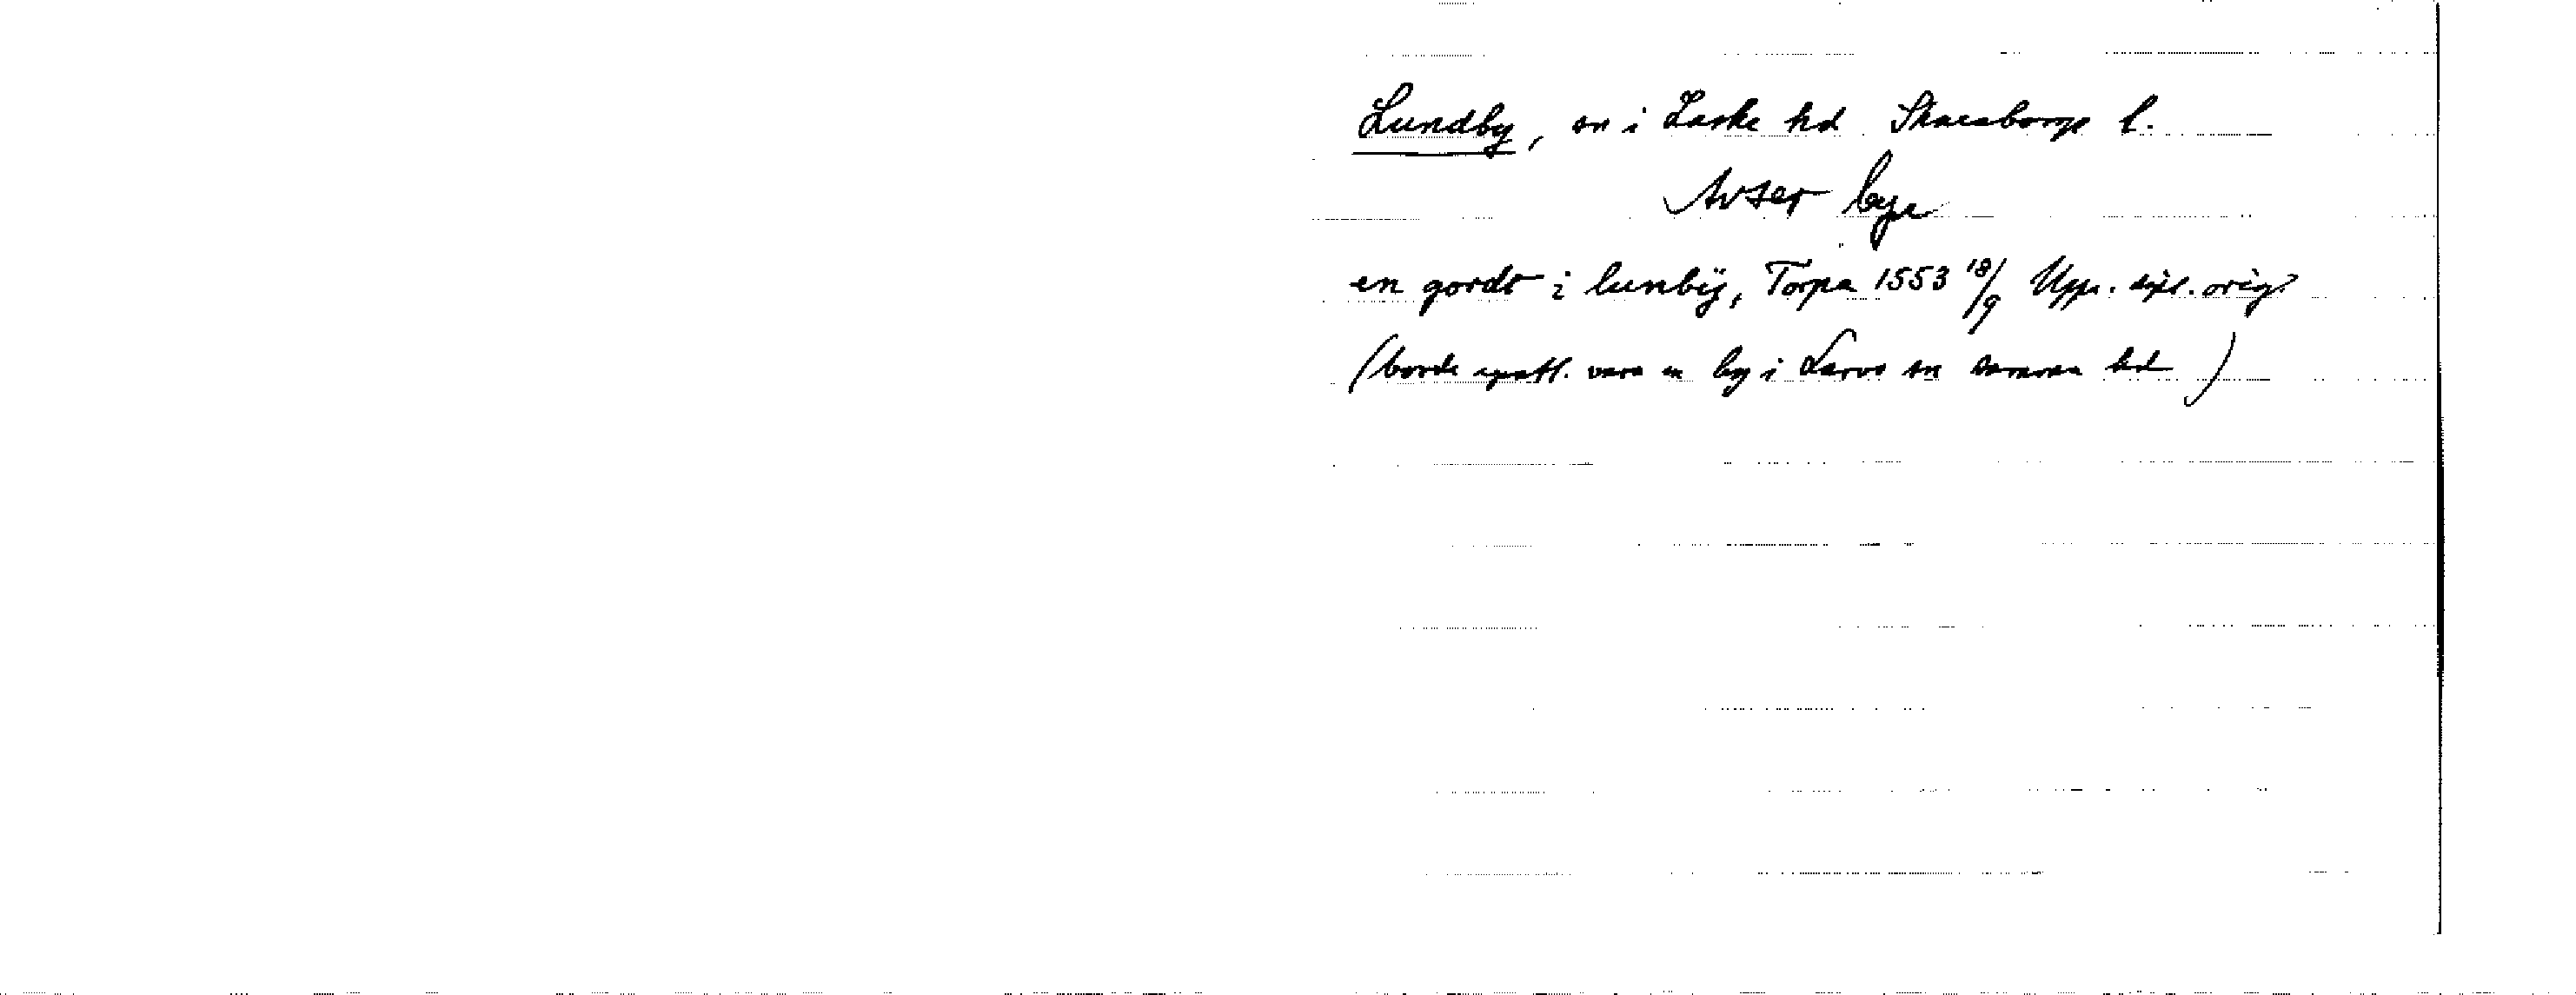 Lundby, sn i Laske hd Skaraborgs l.
Avser byn
en gordt i lunbÿ, Torpa 1553 18/9 Upps. dipl. orig.
(borde vara en by i Larvs sn samma hd)